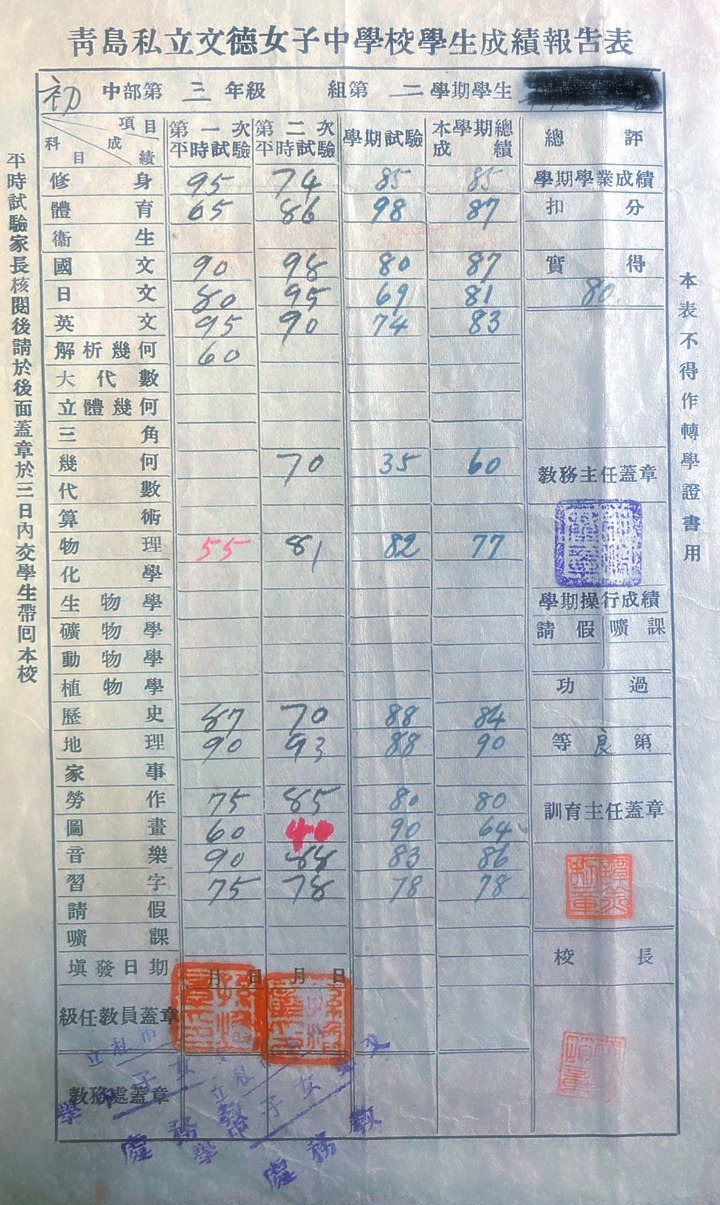 靑島私立文德女子中學校學生成績報吿表
初 中部第 三 年級 組第 二 學期學生
項目 成績 科目 第一次平時試驗 第二次平時試驗 學期試驗 本學期總成績 總評
修身 95 74 85 85 學期學業成績
體育 65 86 98 87 扣分
衞生
國文 90 98 80 87 實得
日文 80 95 69 81 80
英文 95 90 74 83
解析幾何 60
大代數
立體幾何
三角
幾何 70 35 60 敎務主任蓋章
代數
算術
物理 55 81 82 77
化學
生物學 學期操行成績
礦物學 請假曠課
動物學
植物學 功過
歷史 87 70 88 84
地理 90 93 88 90 等良第
家事
勞作 75 85 80 80 訓育主任蓋章
圖畫 60 40 90 64
音樂 90 88 83 86
習字 75 78 78 78
請假
曠課 校長
塡發日期 月 日 月 日
級任敎員蓋章
敎務處蓋章
平時試驗家長核閱後請於後面蓋章於三日內交學生帶回本校
本表不得作轉學證書用